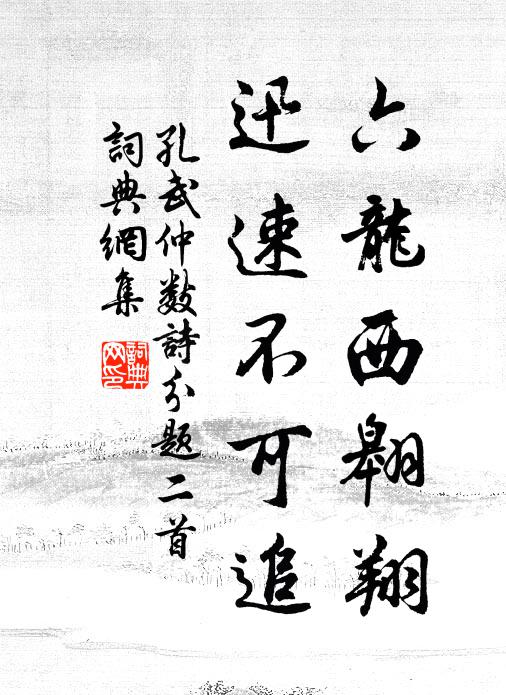 六龍西翱翔
迅速不可追
孔武仲數詩分題二首
詞典網集
詞典
网印